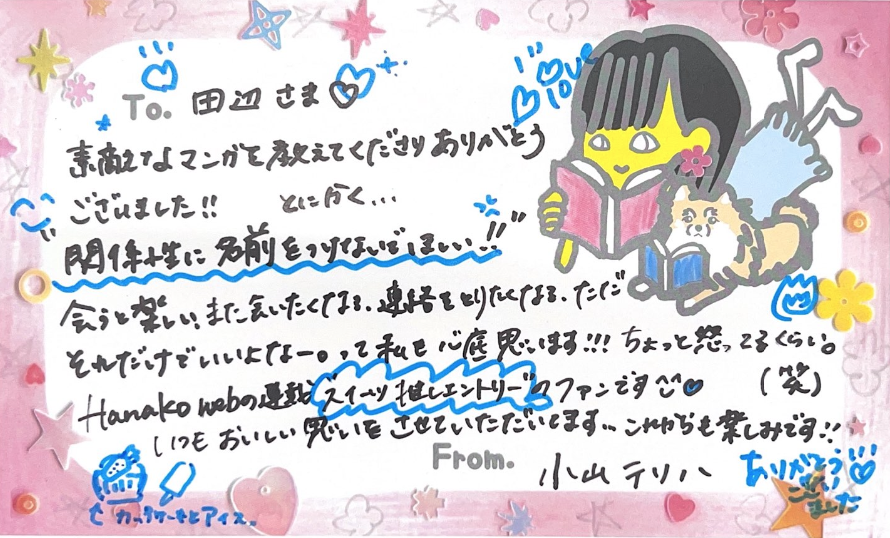 To. 田辺 さま♡
love
love
素敵なマンガを教えてくださりありがとう
ございました!! とにかく…
"関係性に名前をつけないでほしい!!"
会うと楽しい、また会いたくなる、連絡をとりたくなる、ただ
それだけでいいよなー。って私も心底思います!!! ちょっと怒ってるくらい。
(笑)
Hanako webの連載"スイーツ推しエントリー"のファンです♡
いつもおいしい思いをさせていただいてます… これからも楽しみです!!
From. 小山テリハ
ありがとう
ござい
ました
カップケーキとアイス。